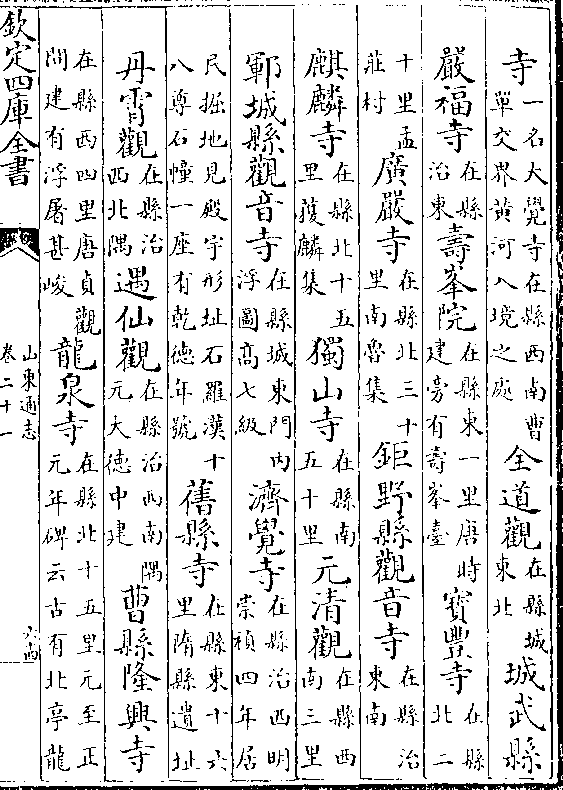 寺一名大覺寺在縣西南曹單交界黄河入境之處全道觀在縣城東北城武縣
嚴福寺在縣治東壽峯院在縣東一里唐時建旁有壽峯臺寶豐寺在縣北二
十里孟莊村廣嚴寺在縣北三十里南魯集鉅野縣觀音寺在縣治東南
麒麟寺在縣北十五里獲麟集獨山寺在縣南五十里元清觀在縣西南三里
鄆城縣觀音寺在縣城東門内浮圖高七級濟覺寺在縣治西明崇禎四年居
民掘地見殿宇形址石羅漢十八尊石幢一座有乾德年號舊縣寺在縣東十六里隋縣遺址
丹霄觀在縣治西北隅遇仙觀在縣治西南隅元大德中建曹縣隆興寺
在縣西四里唐貞觀間建有浮屠甚峻龍泉寺在縣北十五里元至正元年碑云古有北亭龍
欽定四庫全書
山東通志
卷二十一